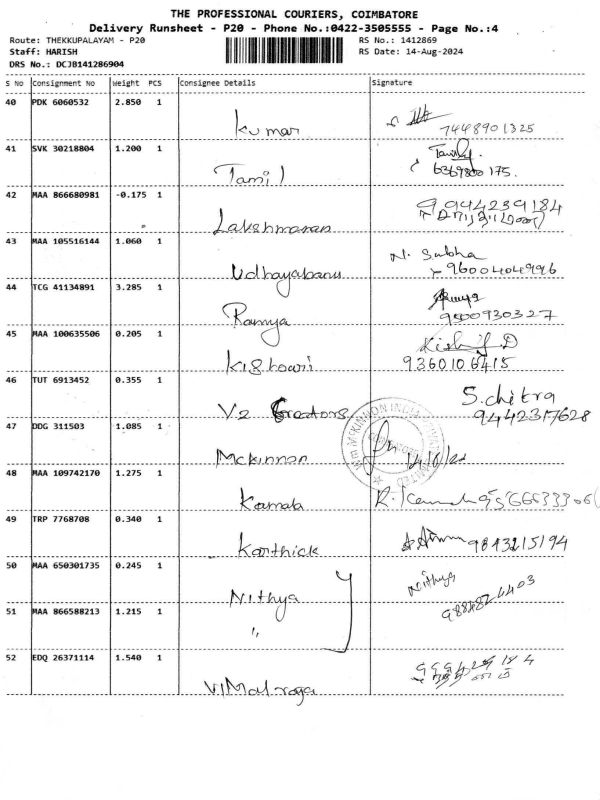 THE PROFESSIONAL COURIERS, COIMBATORE
Delivery Runsheet - P20 - Phone No.:0422-3505555 - Page No.:4
Route: THEKKUPALAYAM - P20 RS No.: 1412869
Staff: HARISH RS Date: 14-Aug-2024
DRS No.: DCJB141286904
S No Consignment No Weight PCS Consignee Details Signature
40 PDK 6060532 2.850 1
Kumar 7448901325
41 SVK 30218804 1.200 1
Tamil 6369800175.
42 MAA 866680981 -0.175 1
Lakshmanan 9994239184
43 MAA 105516144 1.060 1 N. Subha
Udhayabanu 9600404996
44 TCG 41134891 3.285 1
Ramya 9500930327
45 MAA 100635506 0.205 1
Kishowri 9360106415
46 TUT 6913452 0.355 1 S. chitra
V2 Creators 9442317628
47 DDG 311503 1.085 1
Mckinnon
48 MAA 109742170 1.275 1
Kamala
49 TRP 7768708 0.340 1
Karthick 9843215194
50 MAA 650301735 0.245 1 Nithya
Nithya
51 MAA 866588213 1.215 1
"
52 EDQ 26371114 1.540 1